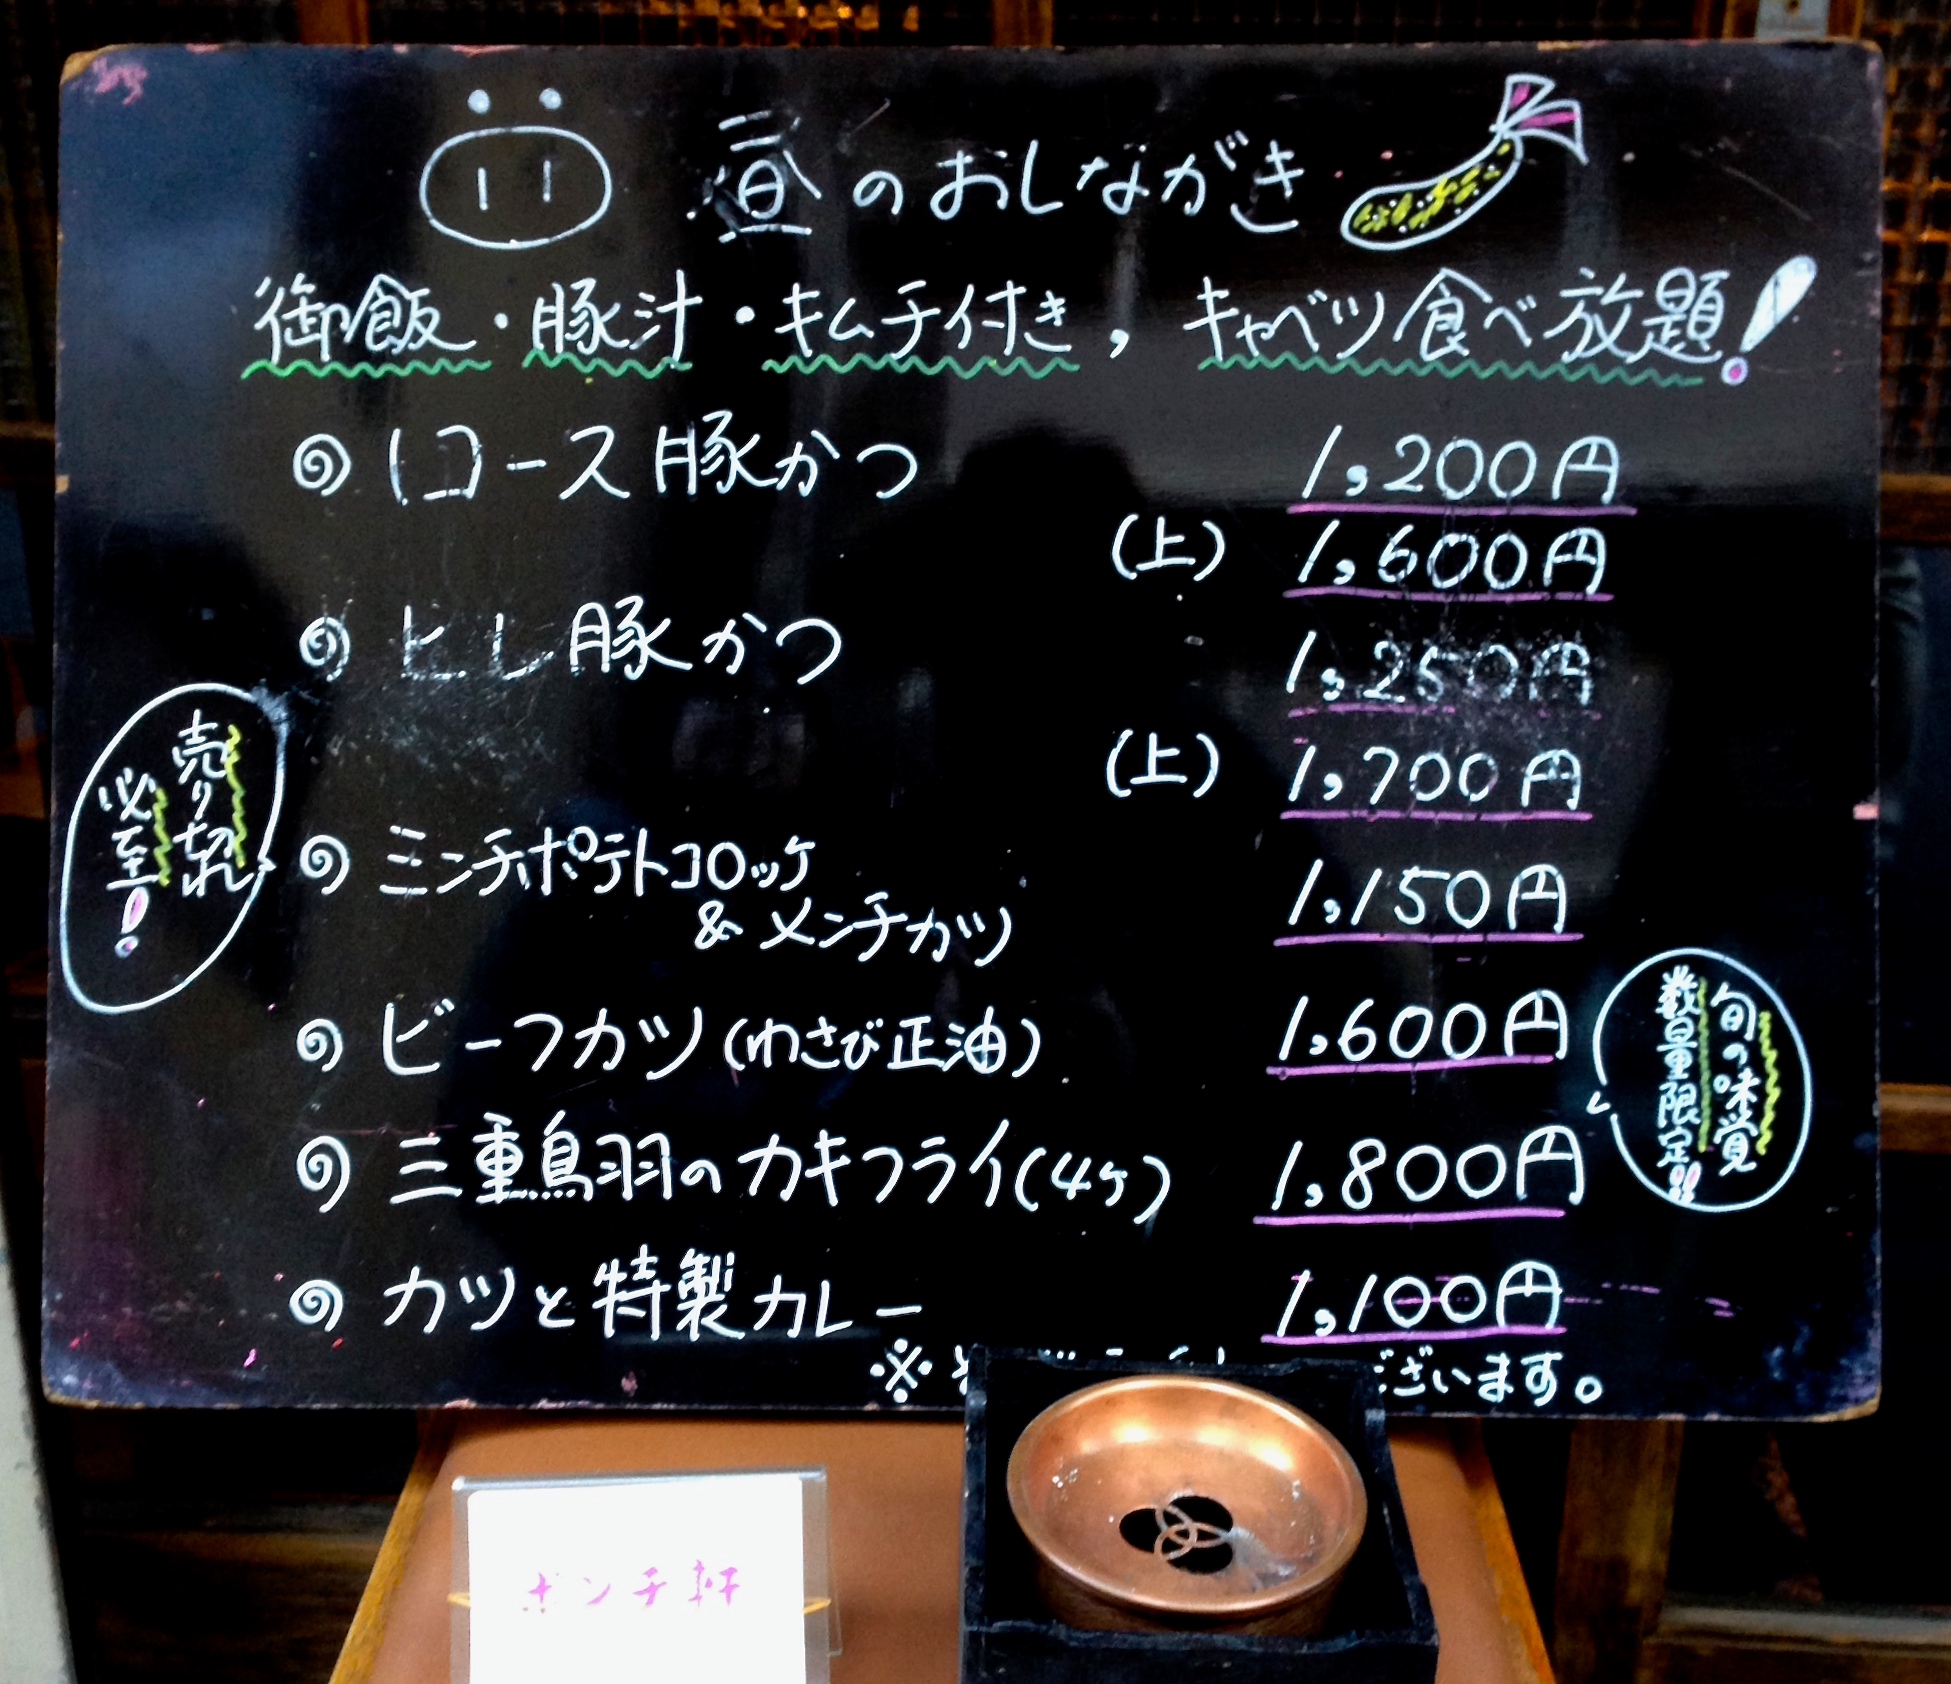 昼のおしながき
御飯・豚汁・キムチ付き，キャベツ食べ放題！
ロース豚かつ 1,200円
(上) 1,600円
ヒレ豚かつ 1,250円
(上) 1,700円
売り切れ
必至！
ミンチポテトコロッケ
&メンチカツ 1,150円
ビーフカツ(わさび正油) 1,600円
旬の味覚
数量限定!!
三重鳥羽のカキフライ(4ケ) 1,800円
カツと特製カレー 1,100円
※ ございます。
ポンチ軒